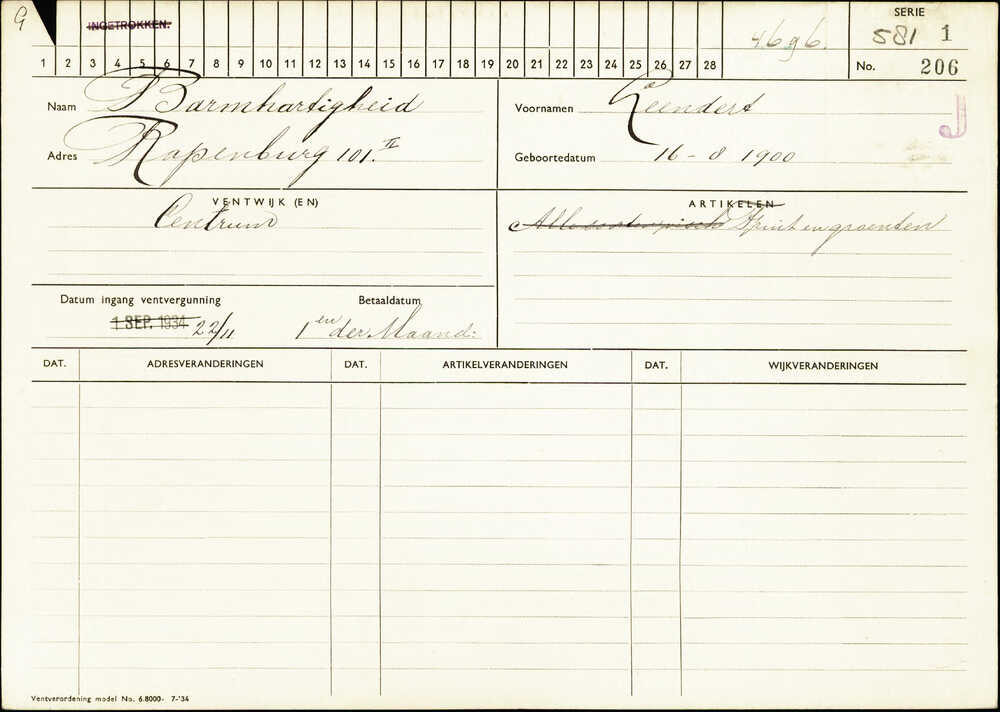 G INGETROKKEN. 4696. SERIE
581 1
1 2 3 4 5 6 7 8 9 10 11 12 13 14 15 16 17 18 19 20 21 22 23 24 25 26 27 28 No. 206
Naam Barmhartigheid Voornamen Leendert J
Adres Rapenburg 101 II Geboortedatum 16-8 1900
VENTWIJK (EN) ARTIKELEN
Centrum fruit en groenten
Datum ingang ventvergunning Betaaldatum
1 SEP. 1934 22/11 1en der Maand:
DAT. ADRESVERANDERINGEN DAT. ARTIKELVERANDERINGEN DAT. WIJKVERANDERINGEN
Ventverordening model No. 6.8000- 7-'34